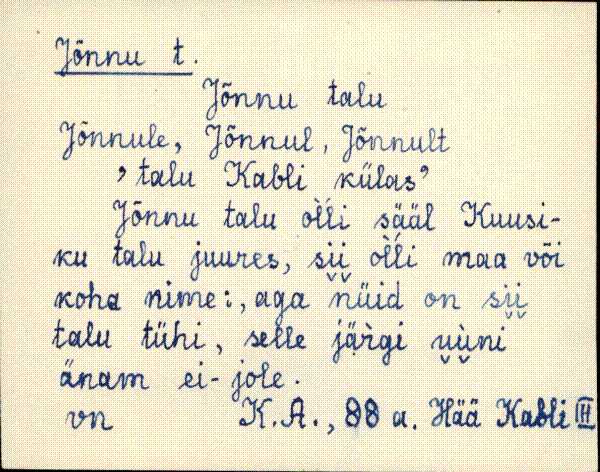 Jõnnu t.
Jõnnu talu
Jõnnule, Jõnnul, Jõnnult
’talu Kabli külas’
Jõnnu talu òl̀li sääl Kuusi-
ku talu juures, si̮i̮ òl̀li maa või
koha nime:, aga nüid on si̮i̮
talu tühi, selle jäŕgi u̮u̮ni
änam ei-jole.
vn K.A., 88 a. Hää Kabli III